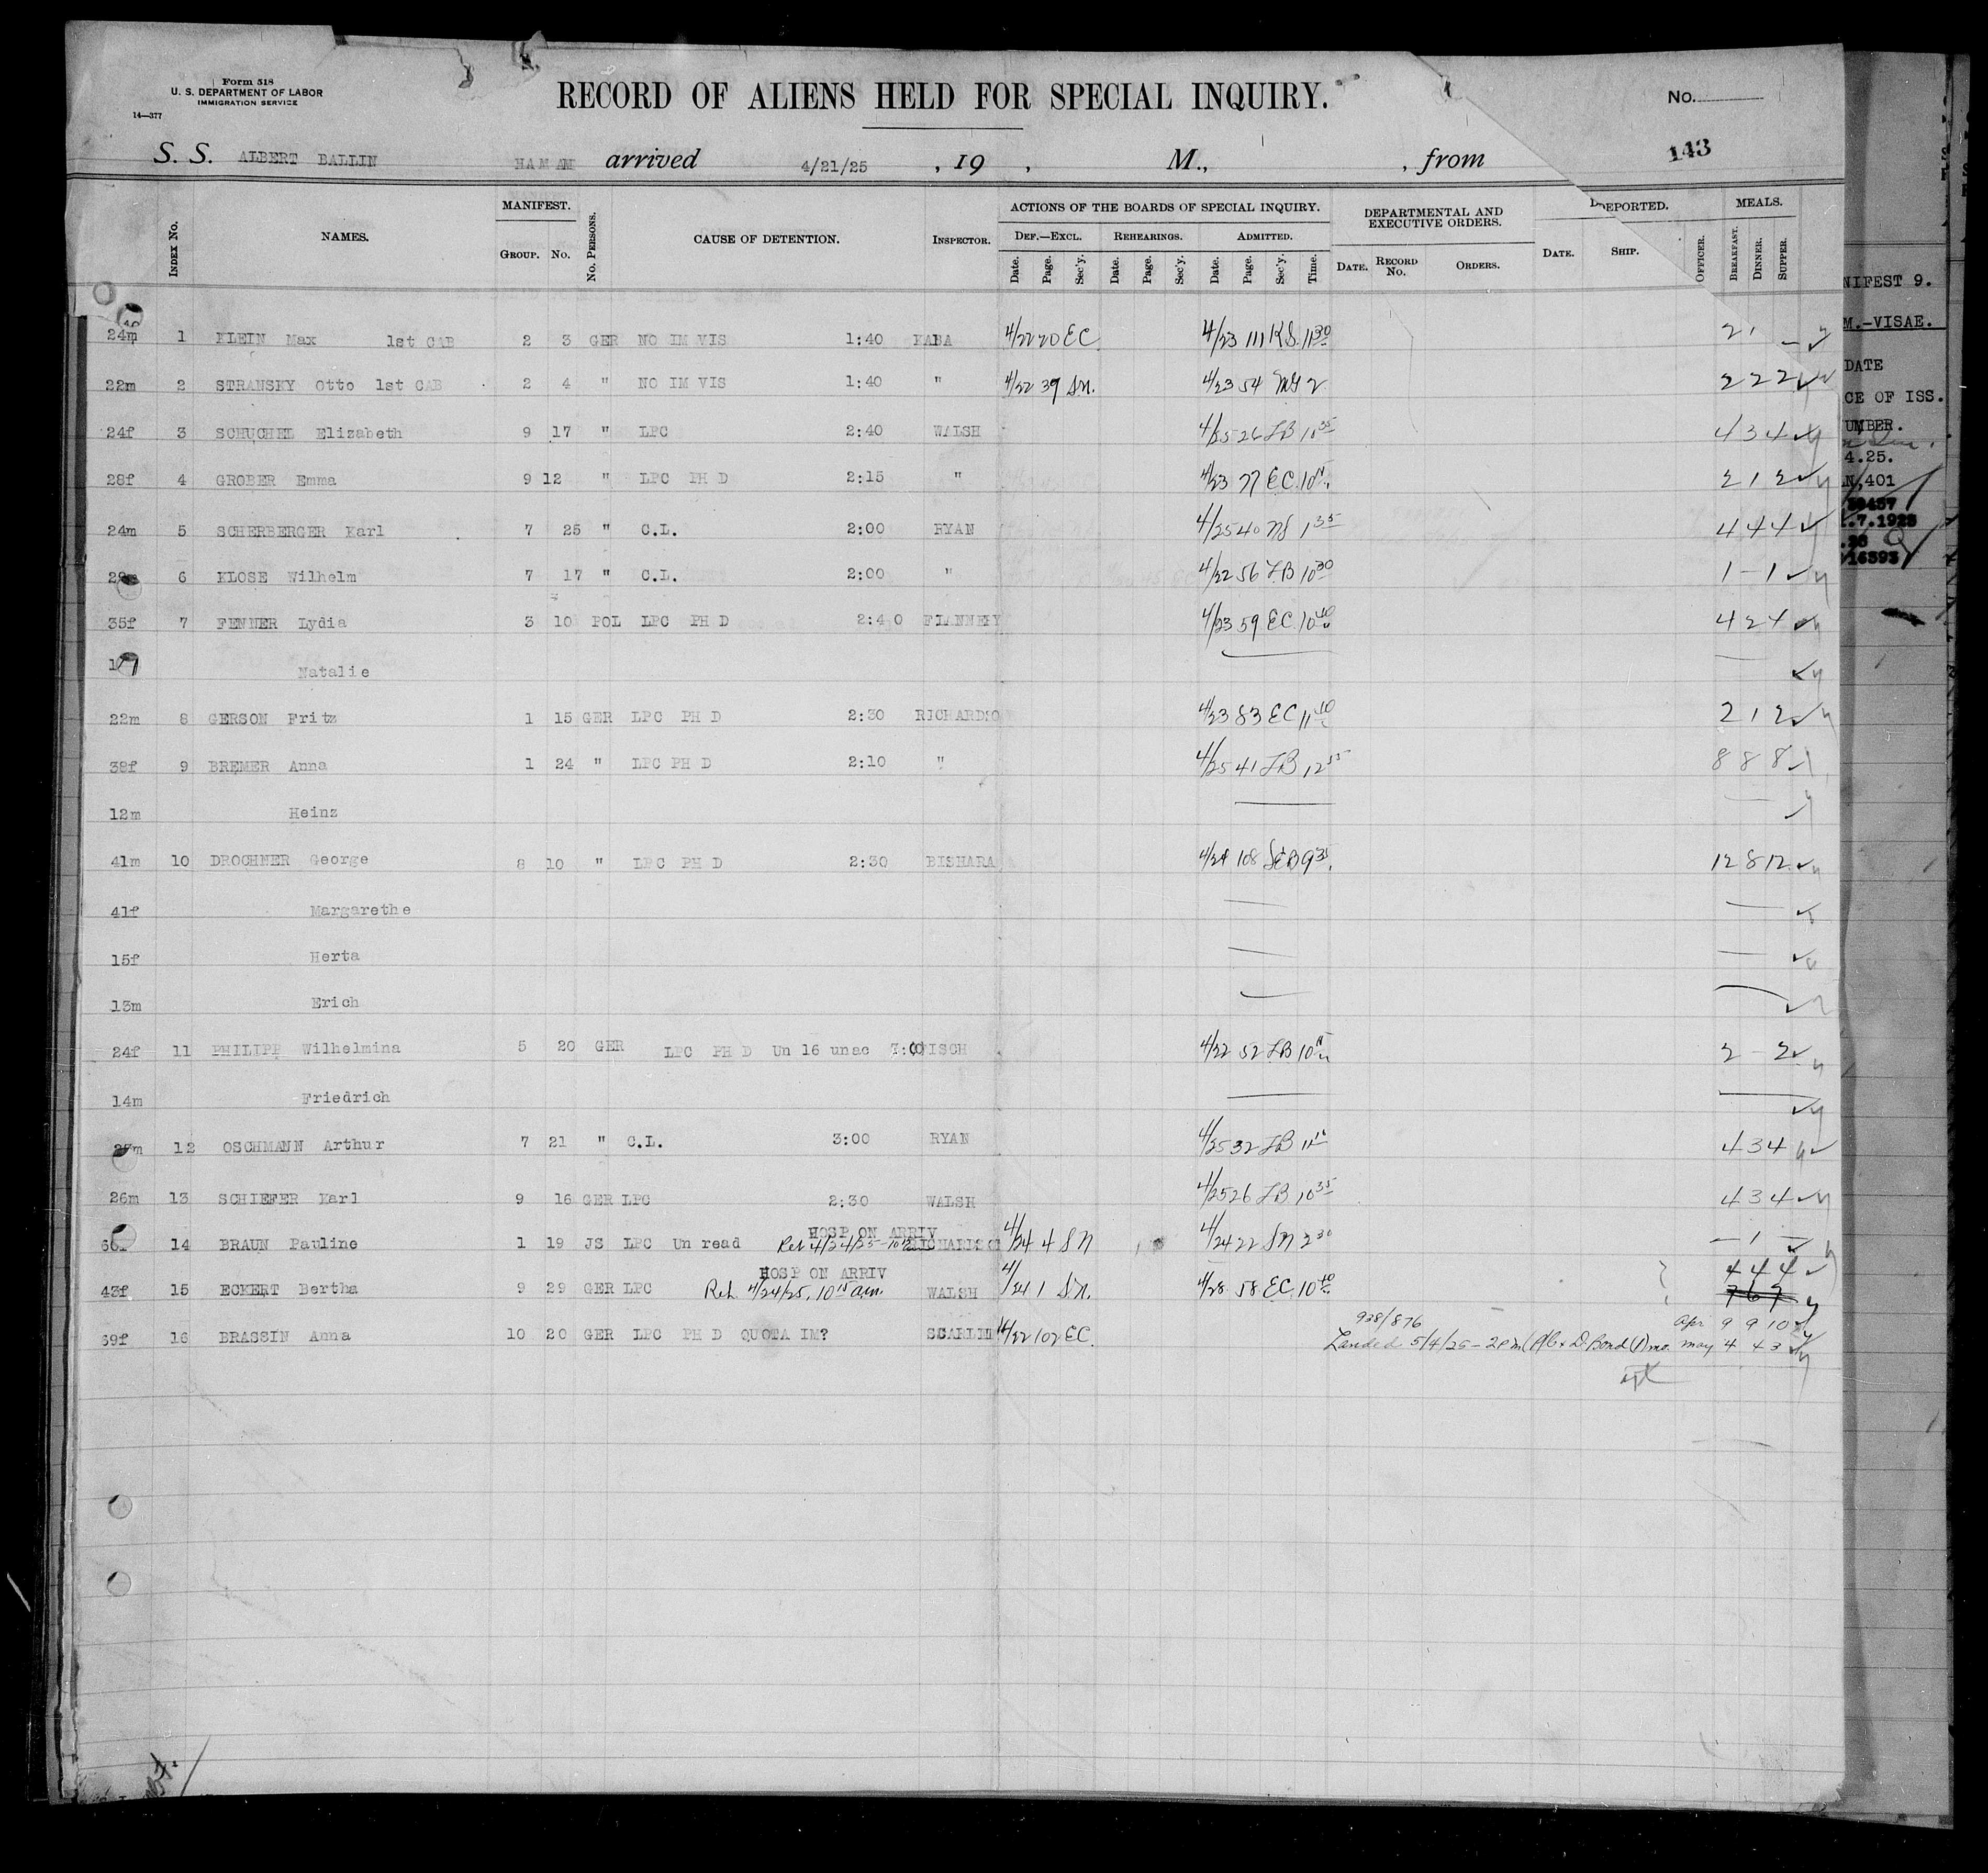 Form 518
U. S. DEPARTMENT OF LABOR
IMMIGRATION SERVICE
14—377
RECORD OF ALIENS HELD FOR SPECIAL INQUIRY.
No.
143
S. S. ALBERT BALLIN HAM AM arrived 4/21/25 , 19 , M., , from
INDEX NO. NAMES. MANIFEST. GROUP. NO. NO. PERSONS. CAUSE OF DETENTION. INSPECTOR. ACTIONS OF THE BOARDS OF SPECIAL INQUIRY. DEPARTMENTAL AND EXECUTIVE ORDERS. DEPORTED. MEALS.
DEF.—EXCL. REHEARINGS. ADMITTED.
Date. Page. Sec'y. Date. Page. Sec'y. Date. Page. Sec'y. Time. DATE. RECORD NO. ORDERS. DATE. SHIP. OFFICER. BREAKFAST. DINNER. SUPPER.
24m 1 KLEIN Max 1st CAB 2 3 GER NO IM VIS 1:40 KABA 4/22 70 EC 4/23 111 KS. 11 30 2 1 –
22m 2 STRANSKY Otto 1st CAB 2 4 " NO IM VIS 1:40 " 4/22 39 S.N. 4/23 54 2 2 2 2
24f 3 SCHUCHEL Elizabeth 9 17 " LPC 2:40 WALSH 4/25 26 LB 10 35 4 3 4
28f 4 GROBER Emma 9 12 " LPC PH D 2:15 " 4/23 77 EC 10 2 1 2
24m 5 SCHERBERGER Karl 7 25 " C.L. 2:00 RYAN 4/25 40 1 35 4 4 4
6 KLOSE Wilhelm 7 17 " C.L. 2:00 " 4/22 56 LB 10 30 1 – 1
35f 7 FENNER Lydia 3 10 POL LPC PH D 2:40 FLANNERY 4/23 59 EC 10 40 4 2 4
Natalie
22m 8 GERSON Fritz 1 15 GER LPC PH D 2:30 RICHARDSO 4/23 83 EC 11 10 2 1 2
38f 9 BREMER Anna 1 24 " LPC PH D 2:10 " 4/25 41 LB 12 55 8 8 8
12m Heinz
41m 10 DROCHNER George 8 10 " LPC PH D 2:30 BISHARA 4/24 108 SEB 9 35 12 8 12
41f Margarethe
15f Herta
13m Erich
24f 11 PHILIPP Wilhelmina 5 20 GER LPC PH D Un 16 unac ISCH 4/22 52 LB 10 2 – 2
14m Friedrich
12 OSCHMANN Arthur 7 21 " C.L. 3:00 RYAN 4/25 32 LB 11 4 3 4
26m 13 SCHIEFER Karl 9 16 GER LPC 2:30 WALSH 4/25 26 LB 10 35 4 3 4
HOSP ON ARRIV
14 BRAUN Pauline 1 19 JS LPC Un read Rel. 4/24/25 RICHARDSO 4/24 4 SN 4/24 22 SN 2 30 – 1 –
HOSP ON ARRIV 4 4 4
43f 15 ECKERT Bertha 9 29 GER LPC Rel. 4/24/25, 10 15 a.m. WALSH 4/24 1 S.N. 4/28 58 EC 10 40 7 6 7
938/876 Apr 9 9 10
39f 16 BRASSIN Anna 10 20 GER LPC PH D QUOTA IM? SCARLET 4/22 102 EC
Landed 5/4/25 – 2 P m (P/C & D. Bond (1) mo. May 4 4 3
NIFEST 9.
M.-VISAE.
DATE
CE OF ISS.
UMBER.
4.25.
N,401
.7.1925
16393